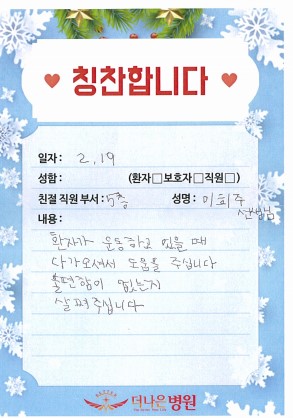 칭찬합니다
일자 : 2, 19
성함 : (환자□보호자□직원□)
친절 직원 부서 : 5층 성명 : 이희주 선생님
내용 :
환자가 운동하고 있을 때
다가오셔서 도움을 주십니다
불편함이 없는지
살펴주십니다
더나은병원